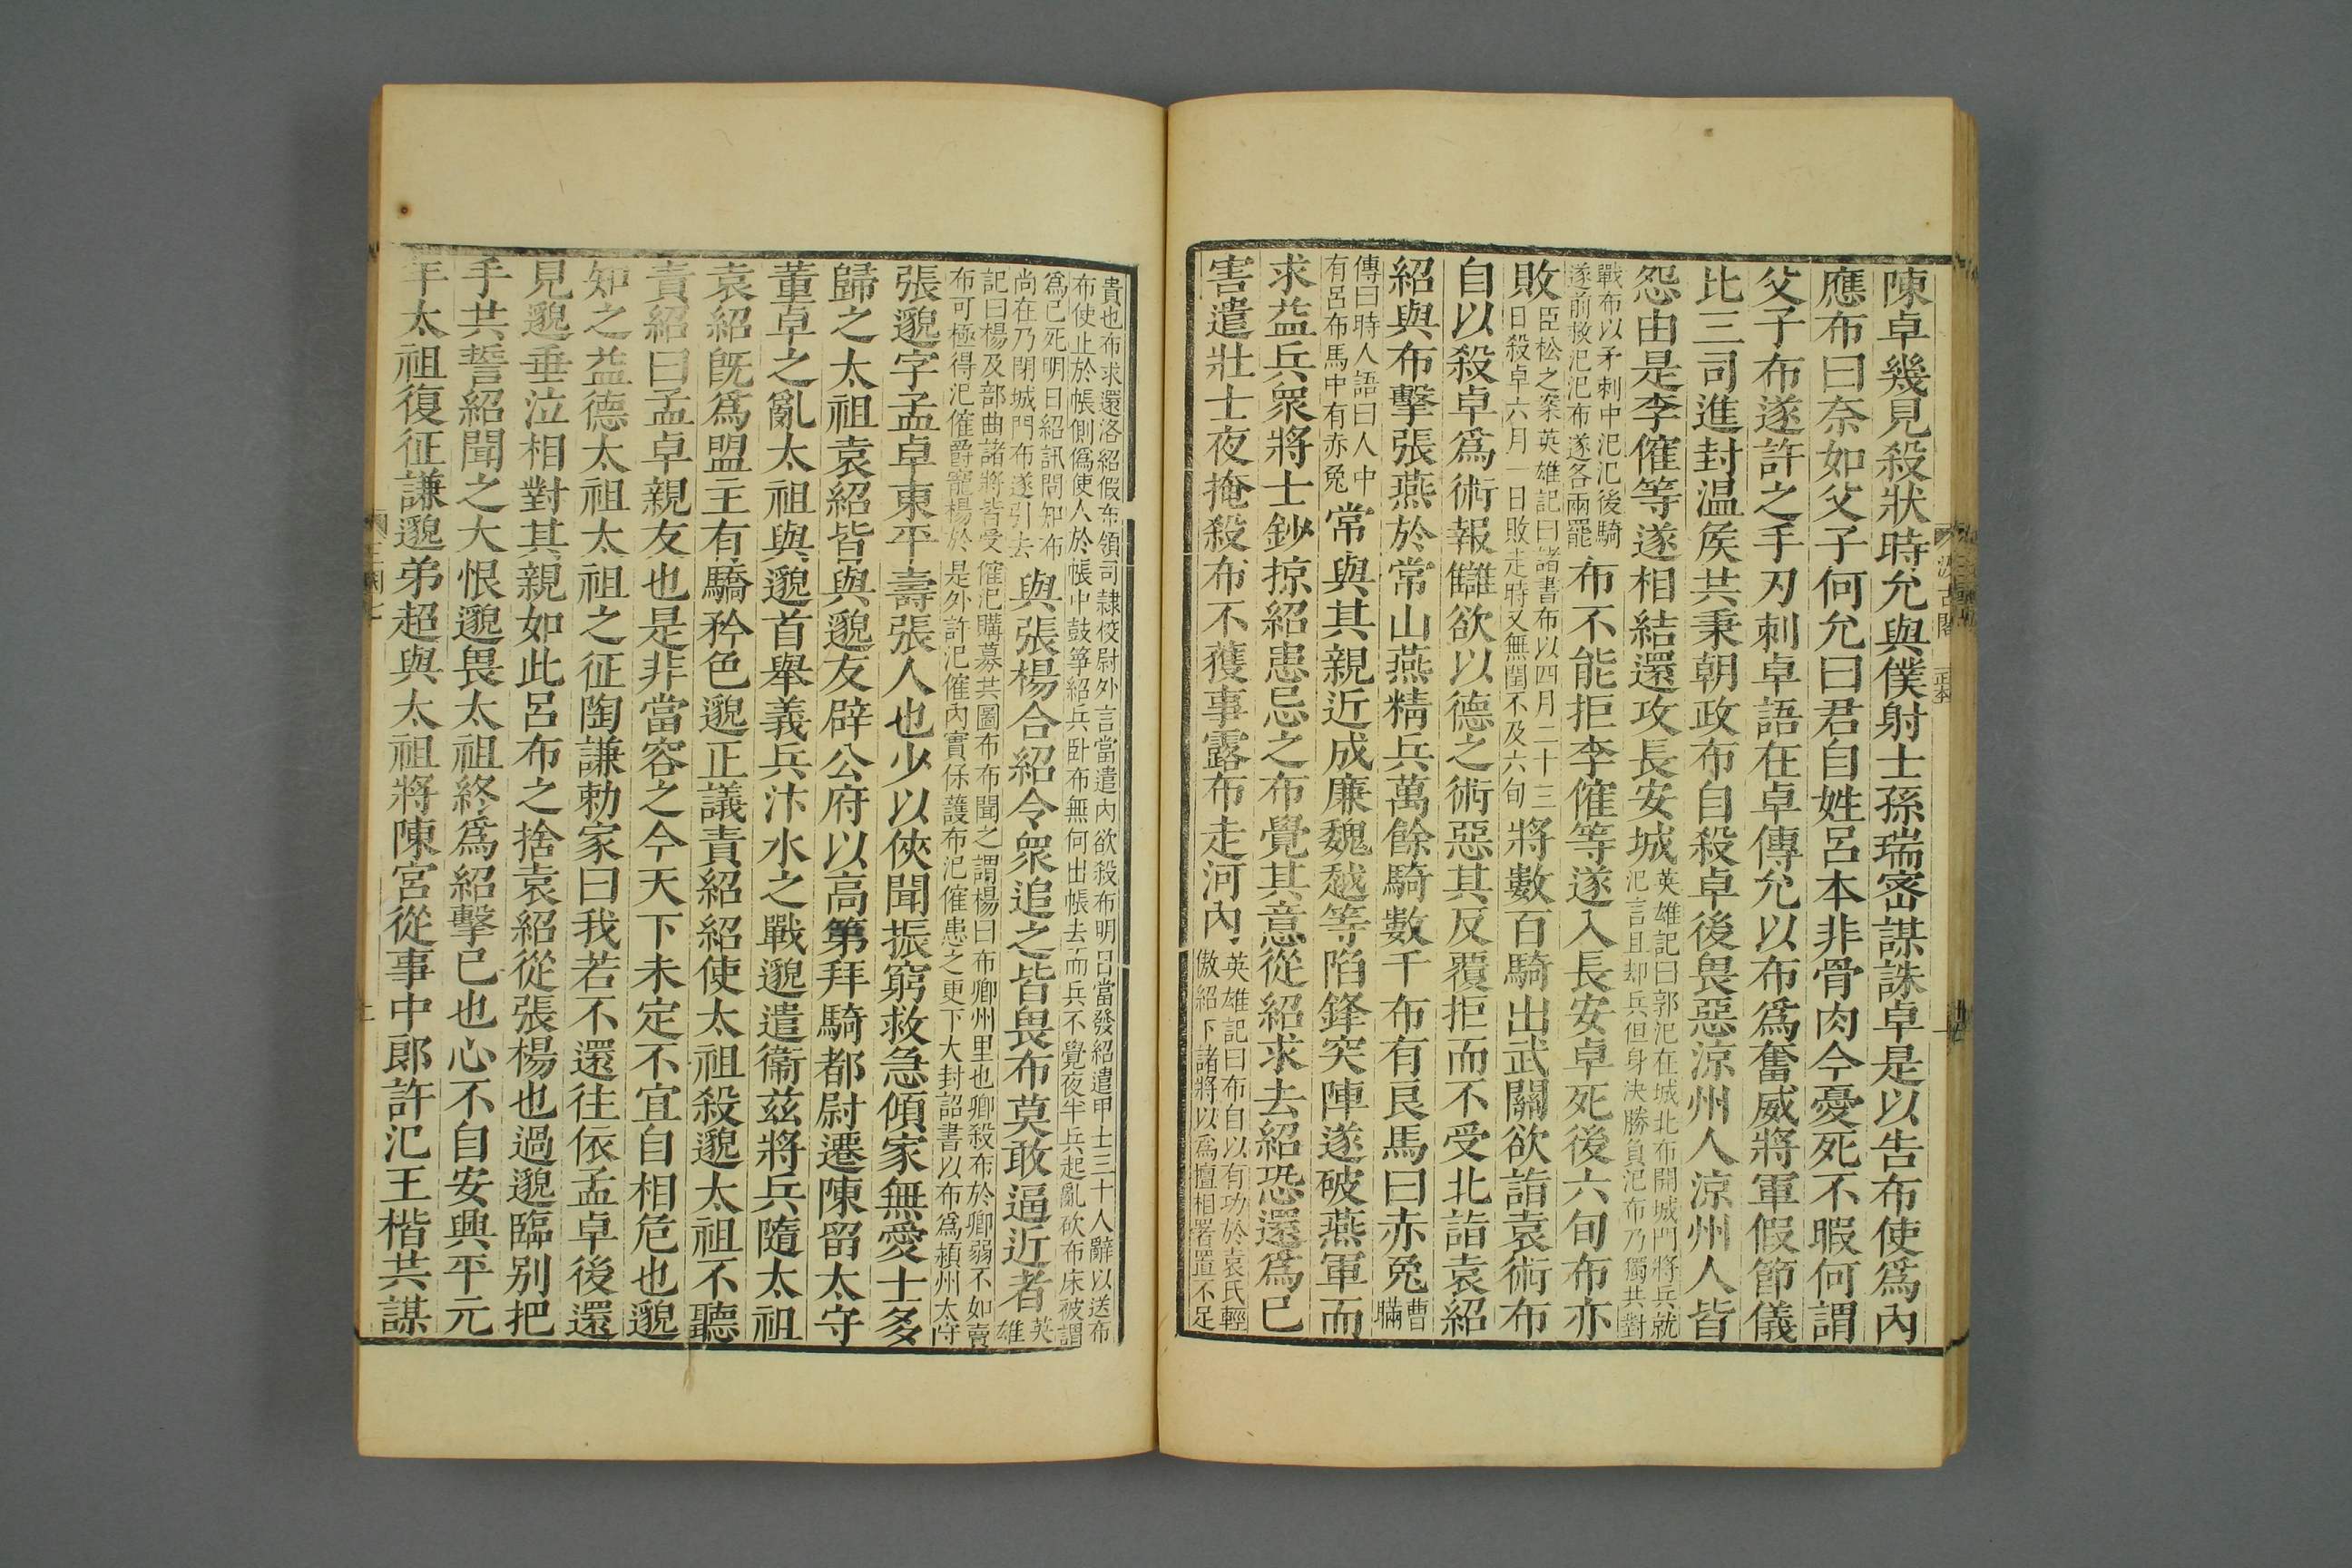 陳卓幾見殺狀時允與僕射士孫瑞宻謀誅卓是以告布使爲內
應布曰奈如父子何允曰君自姓呂本非骨肉今憂死不暇何謂
父子布遂許之手刃刺卓語在卓傳允以布爲奮威將軍假節儀
比三司進封温侯共秉朝政布自殺卓後畏惡涼州人涼州人皆
怨由是李傕等遂相結還攻長安城英雄記曰郭汜在城北布開城門將兵就
汜言且却兵但身决勝負汜布乃獨共對
戰布以矛刺中汜汜後騎
遂前救汜汜布遂各兩罷布不能拒李傕等遂入長安卓死後六旬布亦
敗臣松之案英雄記曰諸書布以四月二十三
日殺卓六月一日敗走時又無閏不及六旬將數百騎出武關欲詣袁術布
自以殺卓爲術報讎欲以德之術惡其反覆拒而不受北詣袁紹
紹與布擊張燕於常山燕精兵萬餘騎數千布有良馬曰赤兔曹
瞞
傳曰時人語曰人中
有呂布馬中有赤兔常與其親近成廉魏越等陷鋒突陣遂破燕軍而
求益兵衆將士鈔掠紹患忌之布覺其意從紹求去紹恐還爲已
害遣壯士夜掩殺布不獲事露布走河內英雄記曰布自以有功於袁氏輕
傲紹下諸將以爲擅相署置不足
貴也布求還洛紹假布領司隸校尉外言當遣內欲殺布明日當發紹遣甲士三十人辭以送布
布使止於帳側僞使人於帳中鼓箏紹兵卧布無何出帳去而兵不覺夜半兵起亂砍布床被謂
爲已死明日紹訊問知布
尚在乃閉城門布遂引去與張楊合紹令衆追之皆畏布莫敢逼近者英
雄
記曰楊及部曲諸將皆受傕汜購募共圖布布聞之謂楊曰布卿州里也卿殺布於卿弱不如賣
布可極得汜傕爵寵楊於是外許汜傕內實保護布汜傕患之更下大封詔書以布爲潁州太守
張邈字孟卓東平壽張人也少以俠聞振窮救急傾家無愛士多
歸之太祖袁紹皆與邈友辟公府以高第拜騎都尉遷陳留太守
董卓之亂太祖與邈首舉義兵汴水之戰邈遣衞兹將兵隨太祖
袁紹旣爲盟主有驕矜色邈正議責紹紹使太祖殺邈太祖不聽
責紹曰孟卓親友也是非當容之今天下未定不宜自相危也邈
知之益德太祖太祖之征陶謙勑家曰我若不還往依孟卓後還
見邈垂泣相對其親如此呂布之捨袁紹從張楊也過邈臨别把
手共誓紹聞之大恨邈畏太祖終爲紹擊已也心不自安興平元
年太祖復征謙邈弟超與太祖將陳宮從事中郎許汜王楷共謀
汲古閣